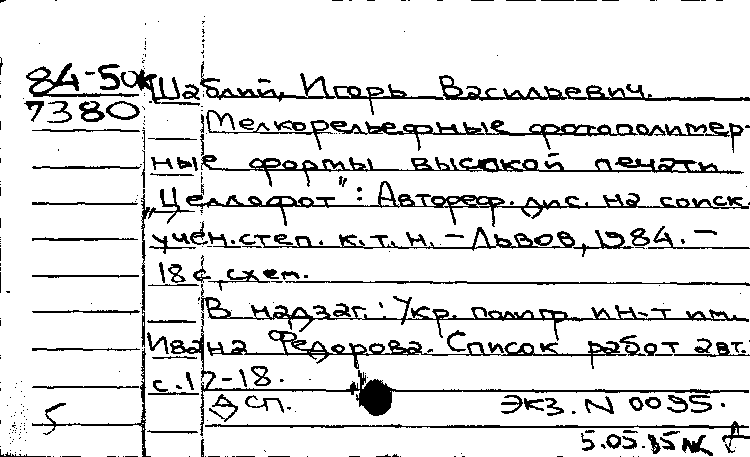 84-50к Шаблий, Игорь Васильевич.
7380 Мелкорельефные фотополимер-
ные формы высокой печати
„Целлофот": Автореф. дис. на соиск.
учен. степ. к. т. н. - Львов, 1984. -
18 с, схем.
В надзаг.: Укр. полигр. ин-т им.
Ивана Федорова. Список работ авт.:
с. 17-18.
ДСП. экз. N 0095.
5 5.05.85